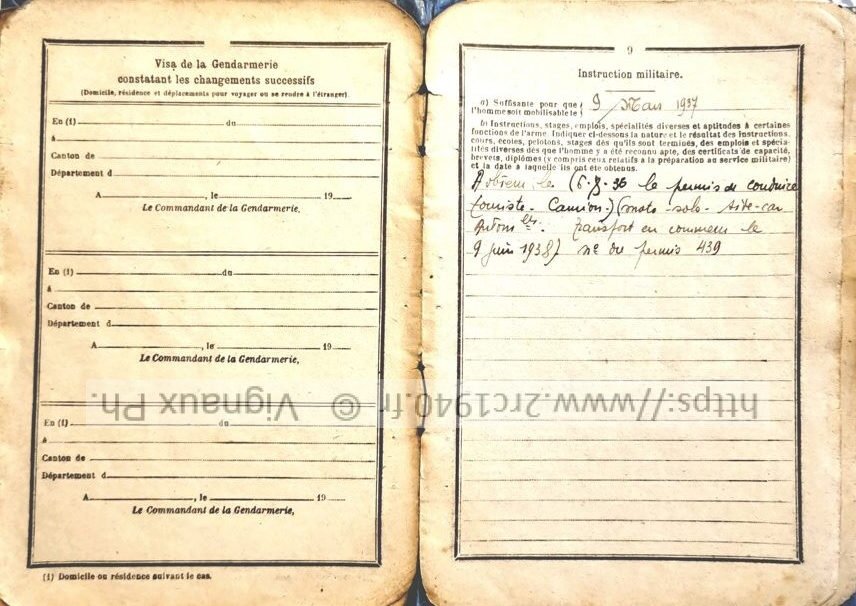 Visa de la Gendarmerie
constatant les changements successifs
(Domicile, résidence et déplacements pour voyager ou se rendre à l'étranger).
En (1) du
à
Canton de
Département d
A , le 19
Le Commandant de la Gendarmerie,
En (1) du
à
Canton de
Département d
A , le 19
Le Commandant de la Gendarmerie,
En (1) du
à
Canton de
Département d
A , le 19
Le Commandant de la Gendarmerie,
(1) Domicile ou résidence suivant le cas.
9
Instruction militaire.
a) Suffisante pour que
l'homme soit mobilisable le 9 Mars 1937
b) Instructions, stages, emplois, spécialités diverses et aptitudes à certaines
fonctions de l'arme. Indiquer ci-dessous la nature et le résultat des instructions,
cours, écoles, pelotons, stages dès qu'ils sont terminés, des emplois et spécia-
lités diverses dès que l'homme y a été reconnu apte, des certificats de capacité,
brevets, diplômes (y compris ceux relatifs à la préparation au service militaire)
et la date à laquelle ils ont été obtenus.
A obtenu le 36 le permis de conduire
touriste - Camion) (moto - solo - side-car
transport en commun le
9 juin 1938) n° du permis 439
https://www.2rc1940.fr © Vignaux Ph.